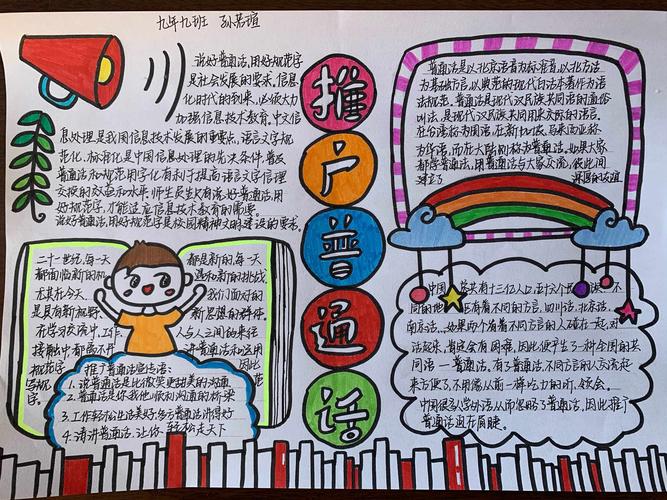 九年九班 孙若瑄
说好普通话,用好规范字
是社会发展的要求。信息
化时代的到来,必须大力
加强信息技术教育。中文信
息处理是我国信息技术发展的重点,语言文字规
范化、标准化是中国信息处理的先决条件。普及
普通话和规范用字化有利于提高语言文字信理
交换的效益和水平。师生员生只有说好普通话,用
好规范字,才能适应信息技术教育的需要。
说好普通话,用好规范字是校园精神文明建设的要求。
推
户
普
通
话
普通话是以北京语音为标准音,以北方话
为基础方言,以典范的现代白话本著作为语
法规范。普通话是现代汉民族共同语的通俗
叫法,是现代汉民族共同用来交际的语言。
在台湾称为国语,在新加坡、马来西亚称
为华语,而在大陆则称为普通话。如果大家
都学普通话,用普通话与大家交流,彼此间
建立了 深厚的友谊
二十一世纪,每一天
都面临新的机
尤其在今天,
是具有新视野、
在学习交流中,工作、
接触中都离不开
规范字,
写规范
字。
都是新的,每一天
遇和新的挑战,
我们面对的
新思想的群体,
人与人之间的来往
讲普通话和运用
因此
推广普通话宣传语:
1.说普通话是比微笑更甜美的沟通
2.普通话是你我他心联和沟通的桥梁
3.工作轻松生活美好,多亏普通话讲得好
4.请讲普通话,让你轻松走天下
中国 共有十三亿人口,五十六个 族。不
同的地 有着不同的方言。四川话,北京话,
南京话……如果两个有着不同方言的人碰在一起,对
话起来,肯定会有困窘,因此便产生了一种全国的共
同语——普通话。有了普通话,不同方言的人交流起
来方便了,不用像从前一样吃力的听、领会。
中国很多人学外语,从而忽略了普通话,因此推广
普通话迫在眉睫。